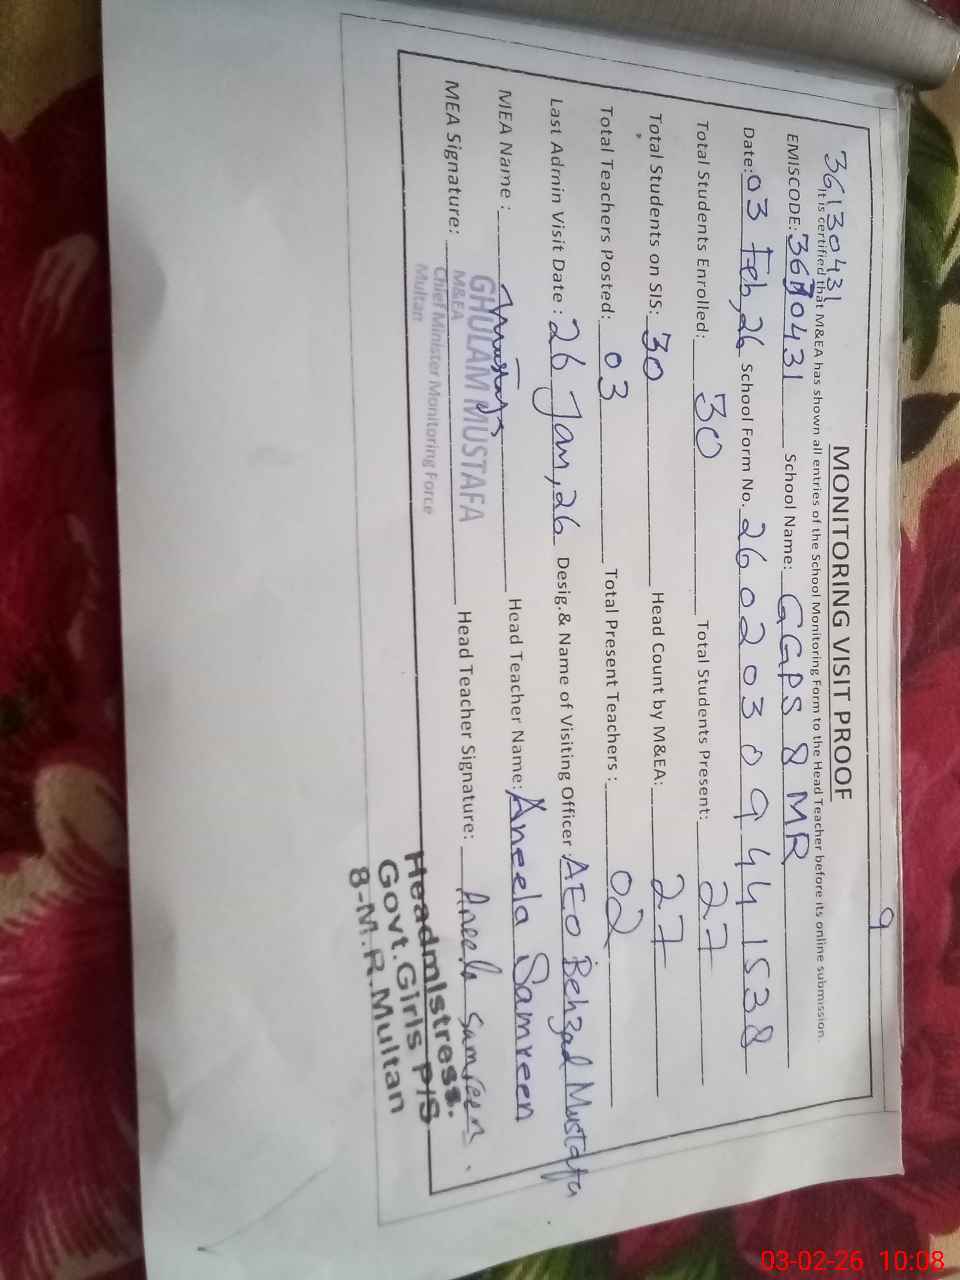 9
MONITORING VISIT PROOF
36130431
It is certified that M&EA has shown all entries of the School Monitoring Form to the Head Teacher before its online submission.
EMISCODE: 36110431 School Name: GGPS 8 MR
Date: 03 Feb, 26 School Form No. 26020309441538
Total Students Enrolled: 30 Total Students Present: 27
Total Students on SIS: 30 Head Count by M&EA: 27
Total Teachers Posted: 03 Total Present Teachers : 02
Last Admin Visit Date : 26 Jan, 26 Desig.& Name of Visiting Officer : AEO Behzad Mustafa
MEA Name : Head Teacher Name: Aneela Samreen
GHULAM MUSTAFA
MEA Signature: Head Teacher Signature: Aneela Samreen.
M&EA
Chief Minister Monitoring Force
Multan
Headmistress.
Govt.Girls P/S
8-M.R.Multan
03-02-26 10:08